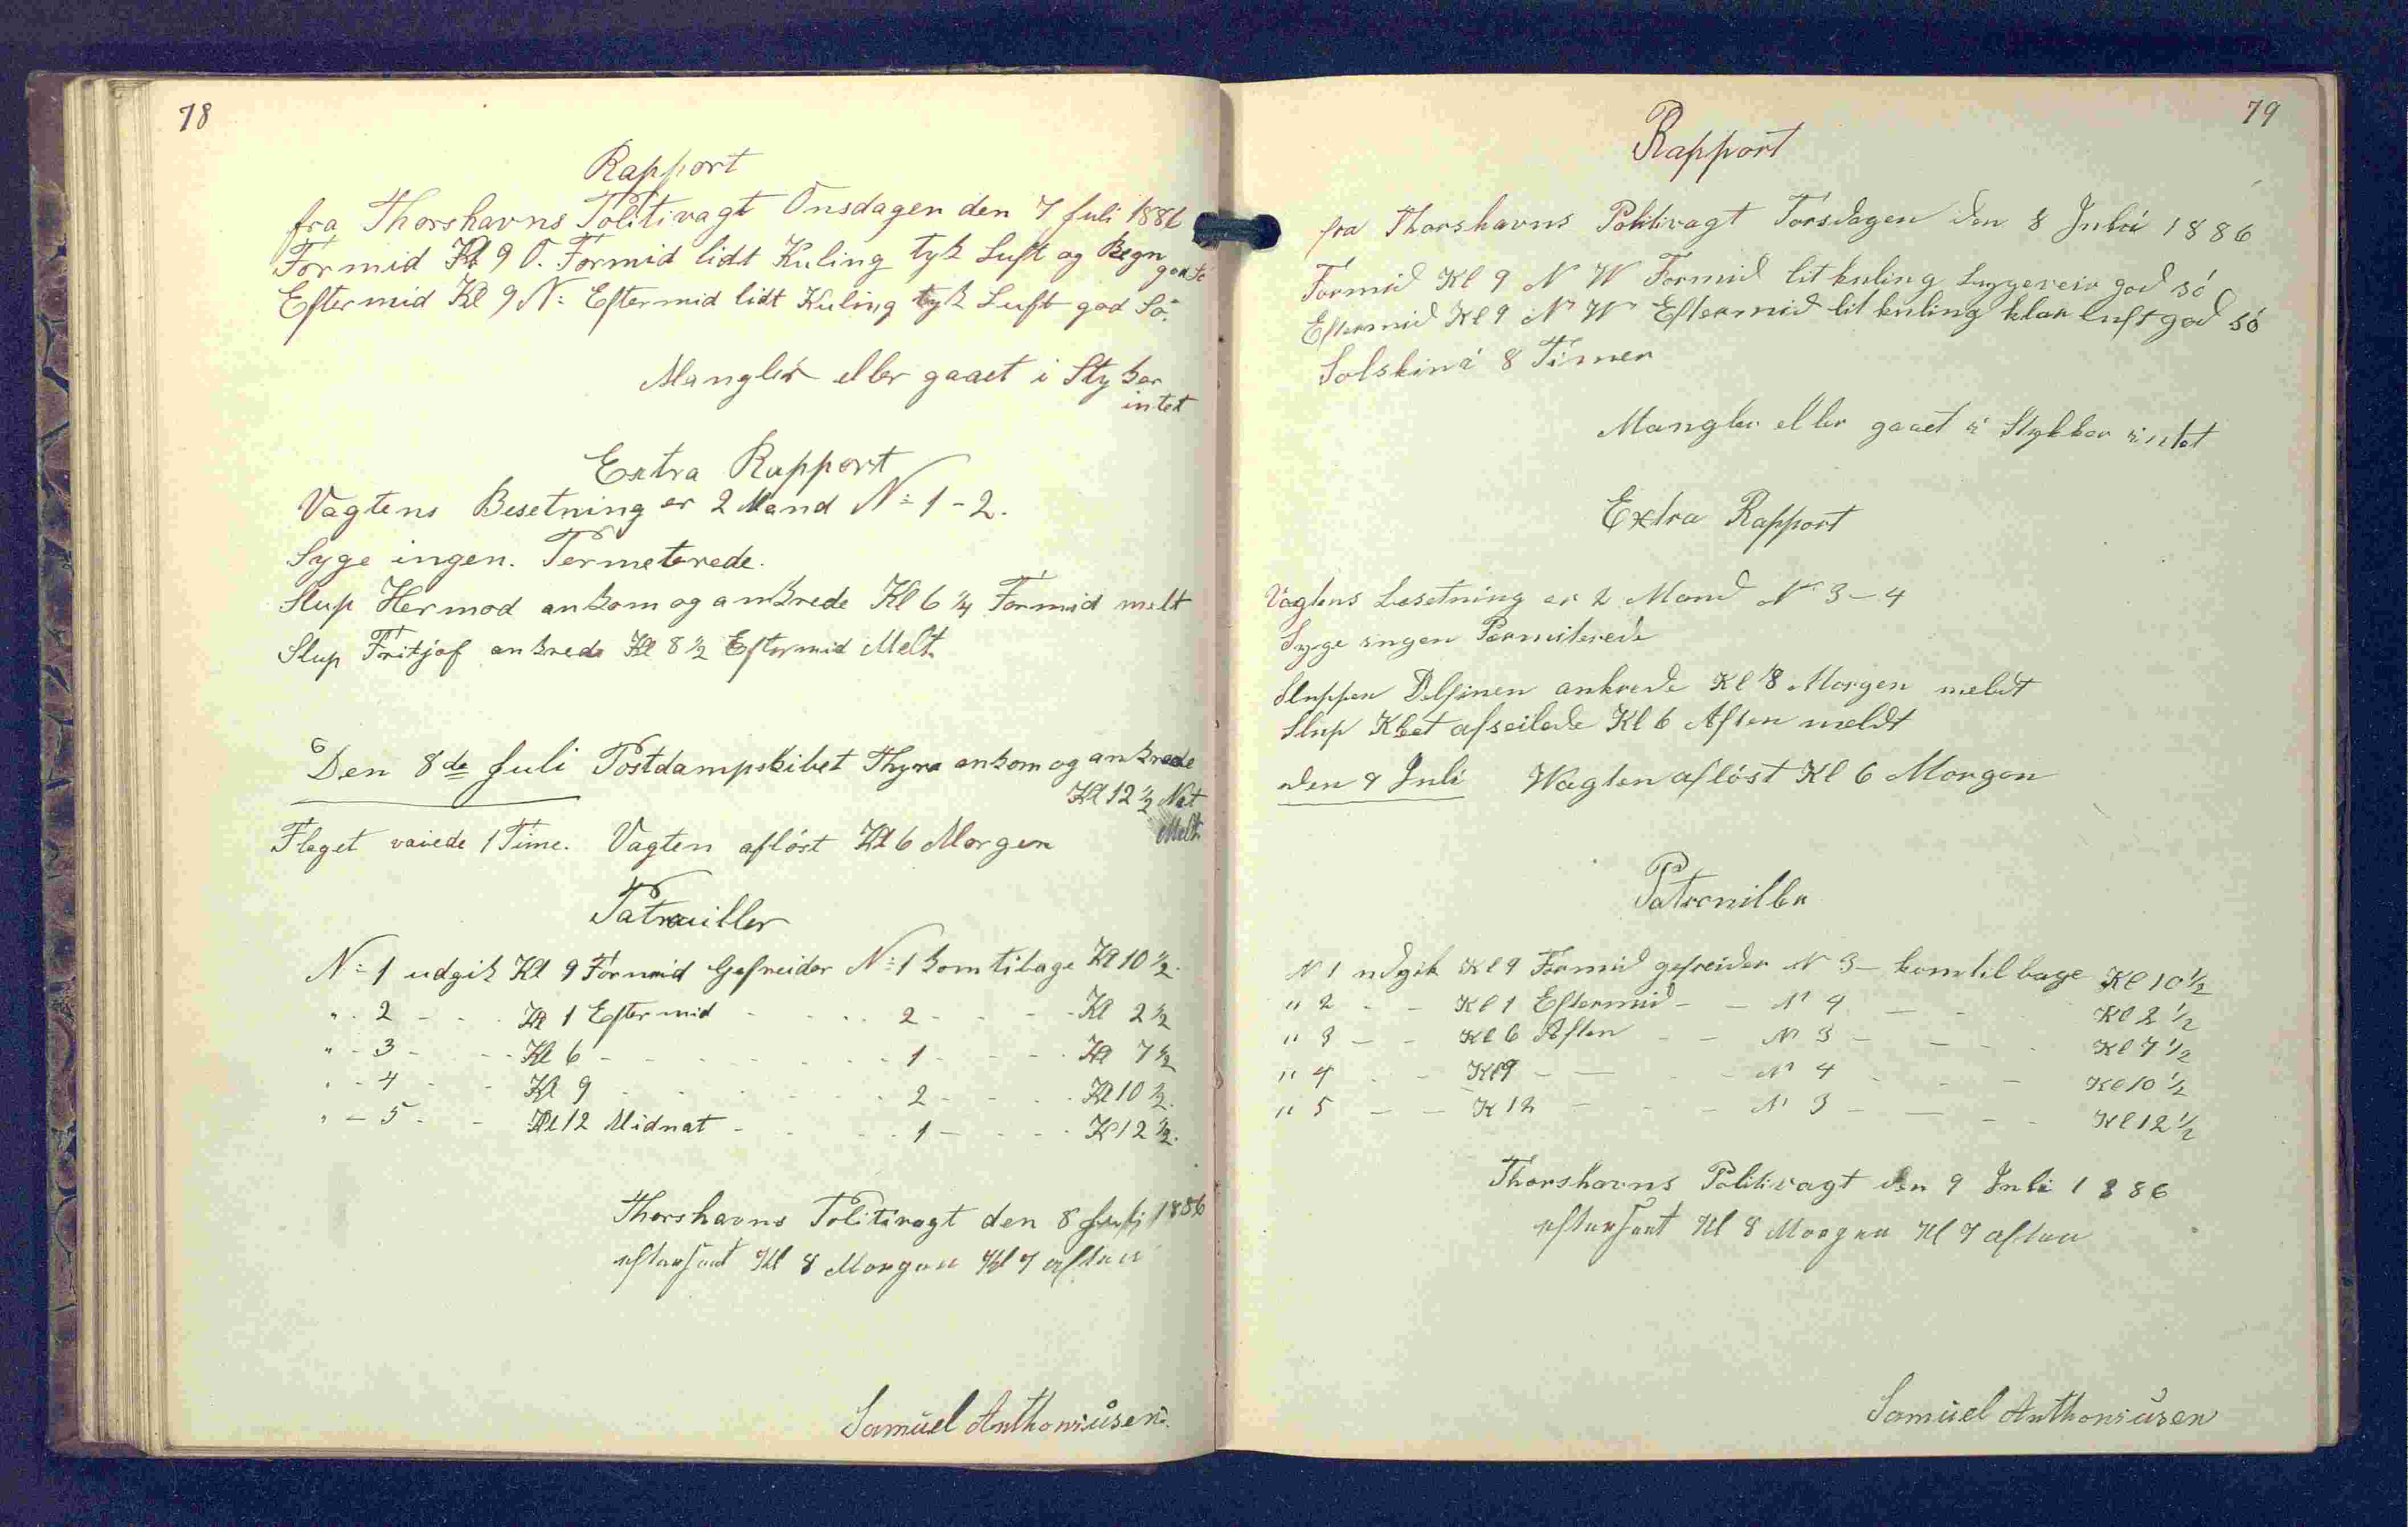 78
Rapport
fra Thorshavns Politivagt Onsdagen den 7 Juli 1886
Formid Kl 9 O. Formid lidt Kuling tyk Luft og Regn
god Sø
Eftermid Kl 9 N: Eftermid lidt Kuling tyk Luft god Sö.
Mangler eller gaaet i Styker
intet
Extra Rapport
Vagtens Besetning er 2 Mand N: 1 - 2.
Syge ingen. Permeterede.
Slup Hermod ankom og ankrede Kl 6 1/4 Formid melt
Slup Fritjof ankrede Kl 8 1/2 Eftermid Melt.
Den 8de Juli Postdampskibet Thyra ankom og ankrede
Kl 12 1/2 Nat
Melt.
Flaget vaiede 1 Time. Vagten aflöst Kl 6 Morgen
Patrouiller
N: 1 udgik Kl 9 Formid Gefreider N: 1 kom tilbage Kl 10 1/2.
" - 2 - - - Kl 1 Eftermid - - - - 2 - - - - Kl 2 1/2
" - 3 - - - Kl 6 - - - - - - - - 1 - - - - Kl 7 1/2
" - 4 - - Kl 9 - - - - - - - 2 - - - - Kl 10 1/2.
" - 5 - - Kl 12 Midnat - - - - 1 - - - - Kl 12 1/2.
Thorshavns Politivagt den 8 Juli 1886
efterseet Kl 8 Morgen Kl 7 aften
Samuel Anthoniusen.
79
Rapport
fra Thorshavns Politivagt Torsdagen den 8 Juli 1886
Formid Kl 9 N W Formid lit kuling byggeveir god só
Eftermid Kl 9 N W Eftermid lit kuling klar luft god só
Solskin i 8 Timer
Mangler eller gaaet i Stykker intet
Extra Rapport
Vagtens Besetning er 2 Mand N 3 - 4
Syge ingen Permiterede
Sluppen Delfinen ankrede Kl 8 Morgen meldt
Slup afseilede Kl 6 Aften meldt
den 9 Juli Wagten aflóst Kl 6 Morgen
Patrouiller
N 1 udgik Kl 9 Formid gefreider N 3 - kom tilbage Kl 10 1/2
" 2 - - Kl 1 Eftermid - - N 4 - - Kl 2 1/2
" 3 - - Kl 6 Aften - - N 3 - - - - Kl 7 1/2
" 4 - - Kl 9 - - - - N 4 - - - Kl 10 1/2
" 5 - - K 12 - - - N 3 - - - - Kl 12 1/2
Thorshavns Politivagt den 9 Juli 1886
efterseet Kl 8 Morgen Kl 7 aften
Samuel Anthoniusen